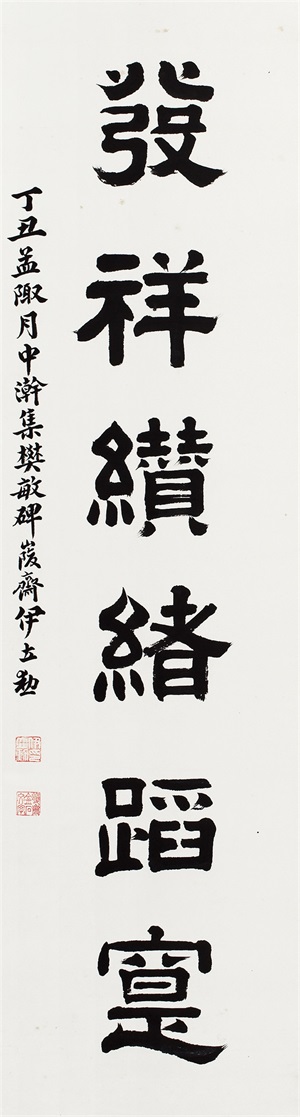 發祥纘緒蹈寔
丁丑孟陬月中澣集樊敏碑峻齋伊立勳